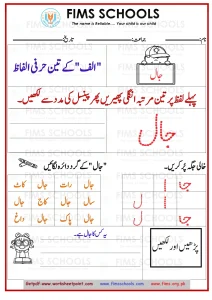 FIMS SCHOOLS
The name is Reliable..... Your child is our child
نام: جماعت: تاریخ:
"الف" کے تین حرفی الفاظ
جال
پہلے لفظ پر تین مرتبہ انگلی پھیریں پھر پینسل کی مدد سے لکھیں۔
جال
"جال" کے گرد دائرہ لگائیں۔
خالی جگہ پُر کریں۔
جال رات جال کاٹ
سال جال کاج جال
جال پاک جال داغ
جا
ا ل
جا ل
یہ کس کا جال ہے۔
پڑھیں اور لکھیں
www.worksheetpoint.com www.fimsschools.com www.fims.org.pk